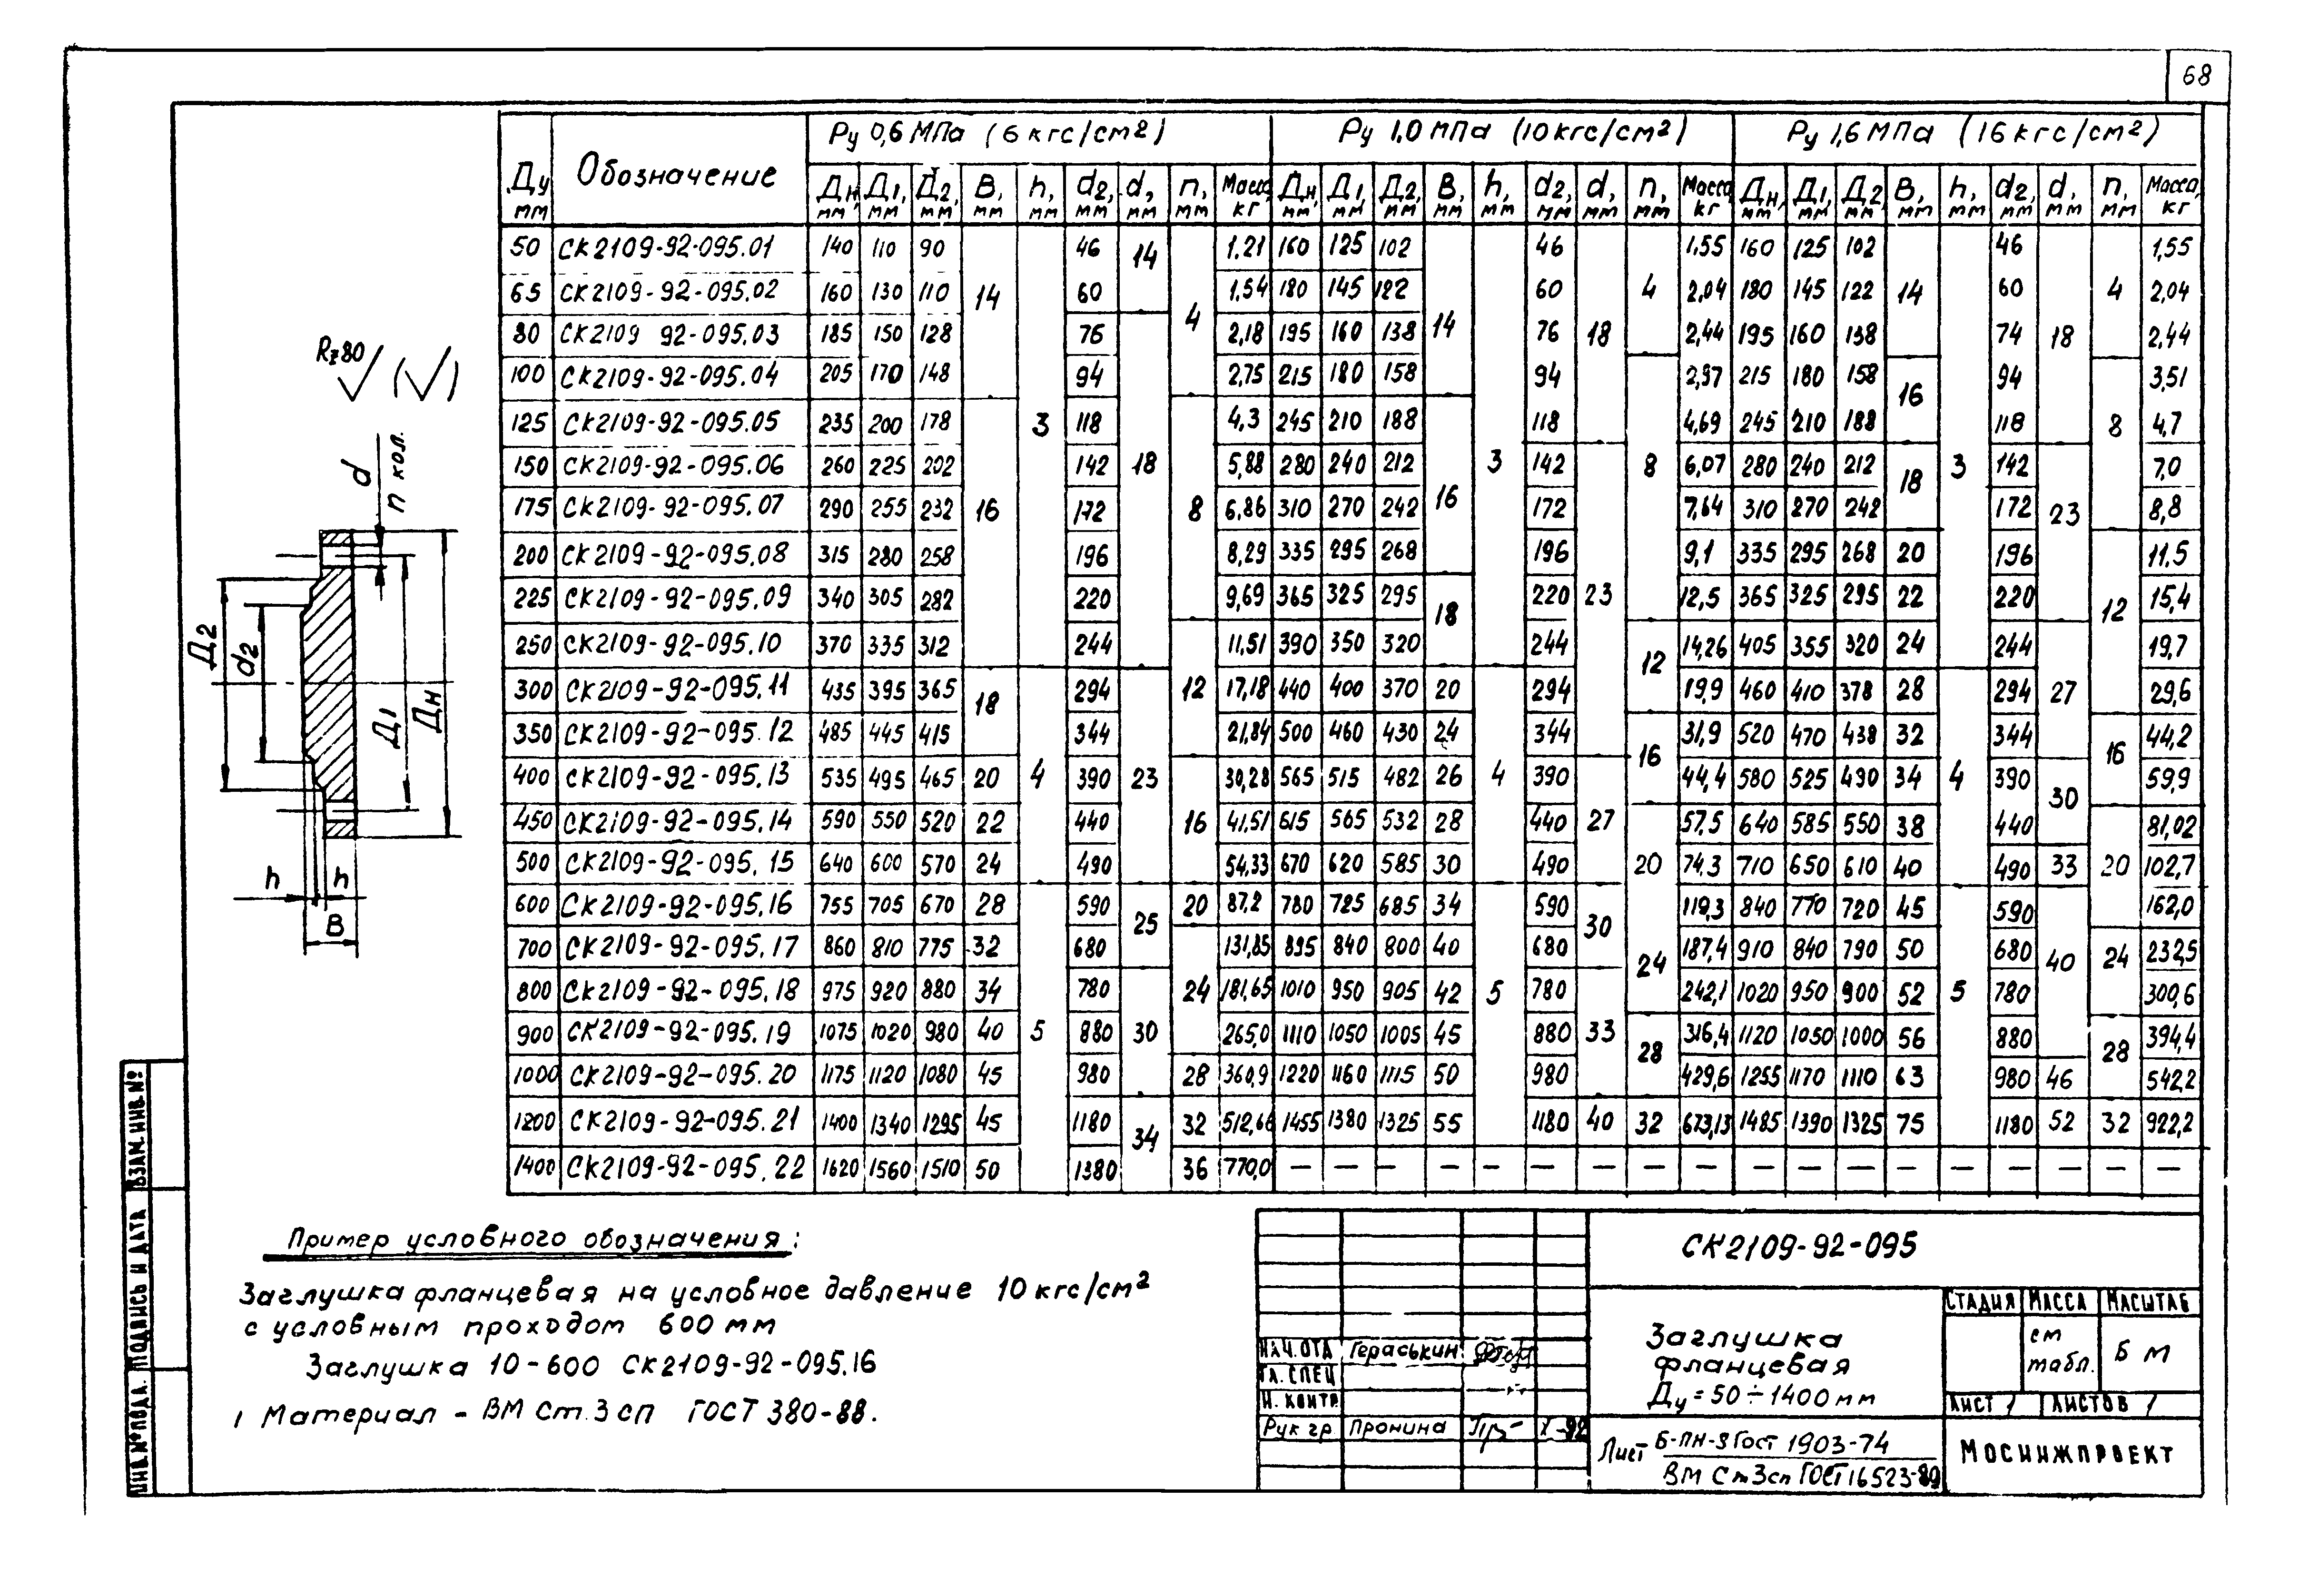 68
Ру 0,6 МПа (6 кгс/см2) Ру 1,0 МПа (10 кгс/см2) Ру 1,6 МПа (16 кгс/см2)
Ду мм Обозначение Дн, мм Д1, мм Д2, мм В, мм h, мм d2, мм d, мм n, мм Масса, кг Дн, мм Д1, мм Д2, мм В, мм h, мм d2, мм d, мм n, мм Масса кг Дн, мм Д1, мм Д2, мм В, мм h, мм d2, мм d, мм n, мм Масса, кг
50 СК2109-92-095.01 140 110 90 14 3 46 14 4 1,21 160 125 102 14 3 46 18 4 1,55 160 125 102 14 3 46 18 4 1,55
65 СК2109-92-095.02 160 130 110 60 1,54 180 145 122 60 2,04 180 145 122 60 2,04
80 СК2109 92-095.03 185 150 128 76 18 2,18 195 160 138 76 2,44 195 160 138 74 2,44
100 СК2109-92-095.04 205 170 148 94 2,75 215 180 158 94 8 2,97 215 180 158 16 94 8 3,51
125 СК2109-92-095.05 235 200 178 16 118 8 4,3 245 210 188 16 118 4,69 245 210 188 118 4,7
150 СК2109-92-095.06 260 225 202 142 5,88 280 240 212 142 23 6,07 280 240 212 18 142 23 7,0
175 СК2109-92-095.07 290 255 232 172 6,86 310 270 242 172 7,64 310 270 242 172 8,8
200 СК2109-92-095.08 315 280 258 196 8,29 335 295 268 196 9,1 335 295 268 20 196 12 11,5
225 СК2109-92-095.09 340 305 282 220 9,69 365 325 295 18 220 12,5 365 325 295 22 220 15,4
250 СК2109-92-095.10 370 335 312 244 12 11,51 390 350 320 244 12 14,26 405 355 320 24 244 27 19,7
300 СК2109-92-095.11 435 395 365 18 4 294 23 17,18 440 400 370 20 4 294 19,9 460 410 378 28 4 294 29,6
350 СК2109-92-095.12 485 445 415 344 21,84 500 460 430 24 344 16 31,9 520 470 438 32 344 16 44,2
400 СК2109-92-095.13 535 495 465 20 390 16 30,28 565 515 482 26 390 27 44,4 580 525 490 34 390 30 59,9
450 СК2109-92-095.14 590 550 520 22 440 41,51 615 565 532 28 440 20 57,5 640 585 550 38 440 20 81,02
500 СК2109-92-095.15 640 600 570 24 490 54,33 670 620 585 30 490 74,3 710 650 610 40 490 33 102,7
600 СК2109-92-095.16 755 705 670 28 5 590 25 20 87,2 780 725 685 34 5 590 30 24 119,3 840 770 720 45 5 590 40 162,0
700 СК2109-92-095.17 860 810 775 32 680 24 131,85 895 840 800 40 680 187,4 910 840 790 50 680 24 232,5
800 СК2109-92-095.18 975 920 880 34 780 30 181,65 1010 950 905 42 780 33 242,1 1020 950 900 52 780 300,6
900 СК2109-92-095.19 1075 1020 980 40 880 265,0 1110 1050 1005 45 880 28 316,4 1120 1050 1000 56 880 28 394,4
1000 СК2109-92-095.20 1175 1120 1080 45 980 28 360,9 1220 1160 1115 50 980 429,6 1255 1170 1110 63 980 46 542,2
1200 СК2109-92-095.21 1400 1340 1295 45 1180 34 32 512,66 1455 1380 1325 55 1180 40 32 673,13 1485 1390 1325 75 1180 52 32 922,2
1400 СК2109-92-095.22 1620 1560 1510 50 1380 36 770,0 — — — — — — — — — — — — — — — — — —
Rz80
(√)
d
n кол.
Д2
d2
Д1
Дн
h
h
В
Пример условного обозначения:
Заглушка фланцевая на условное давление 10 кгс/см2
с условным проходом 600 мм
Заглушка 10-600 СК2109-92-095.16
1 Материал - ВМ Ст.3 сп ГОСТ 380-88.
ВЗАМ. ИНВ. №
ПОДПИСЬ И ДАТА
ИНВ. № ПОДЛ.
СК2109-92-095
Заглушка
фланцевая
Ду = 50 ÷ 1400 мм
СТАДИЯ МАССА МАСШТАБ
см табл. Б М
ЛИСТ 1 ЛИСТОВ 1
НАЧ. ОТД Гераськин
ГЛ. СПЕЦ
Н. КОНТР
Рук гр Пронина X-92
Лист Б-ПН-8 Гост 1903-74
ВМ Ст3сп ГОСТ 16523-89
МОСИНЖПРОЕКТ